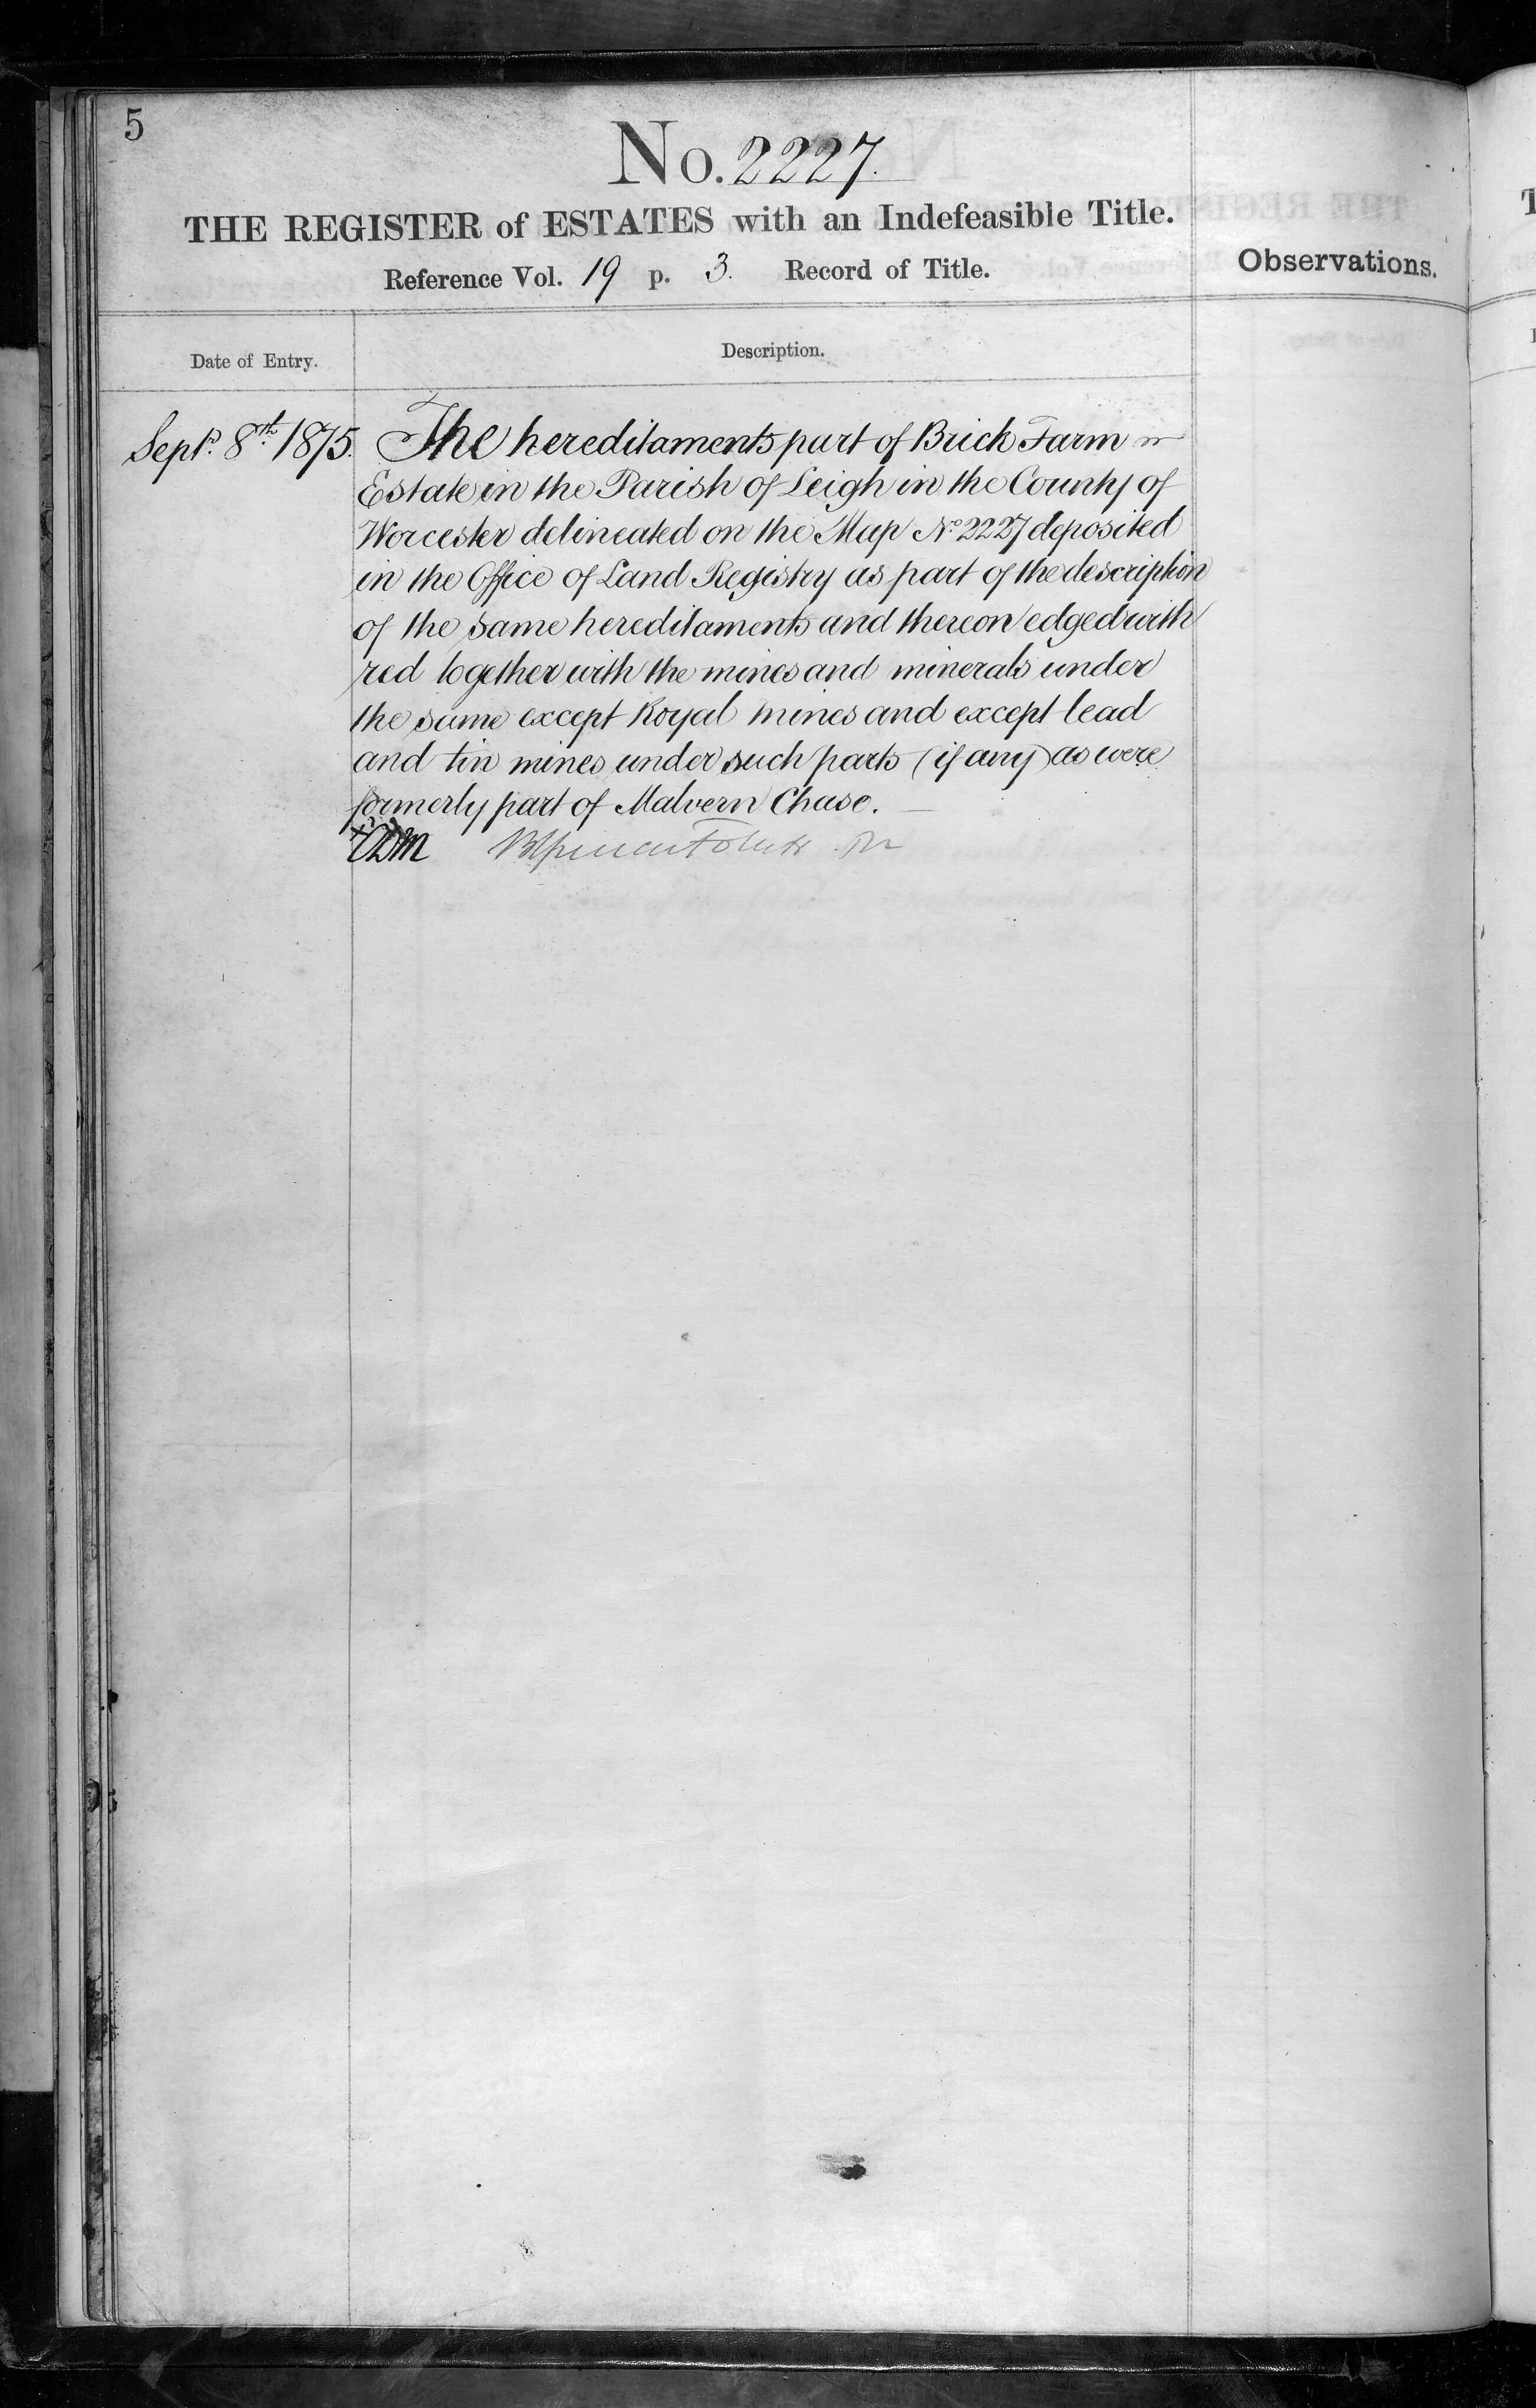 5
No. 2227.
THE REGISTER of ESTATES with an Indefeasible Title.
Reference Vol. 19 p. 3. Record of Title.
Observations.
Date of Entry.
Description.
Septr. 8th. 1875. The hereditaments part of Brick Farm
Estate in the Parish of Leigh in the County of
Worcester delineated on the Map No 2227 deposited
in the Office of Land Registry as part of the description
of the same hereditaments and thereon edged with
red together with the mines and minerals under
the same except Royal mines and except lead
and tin mines under such parts (if any) as were
formerly part of Malvern Chase.